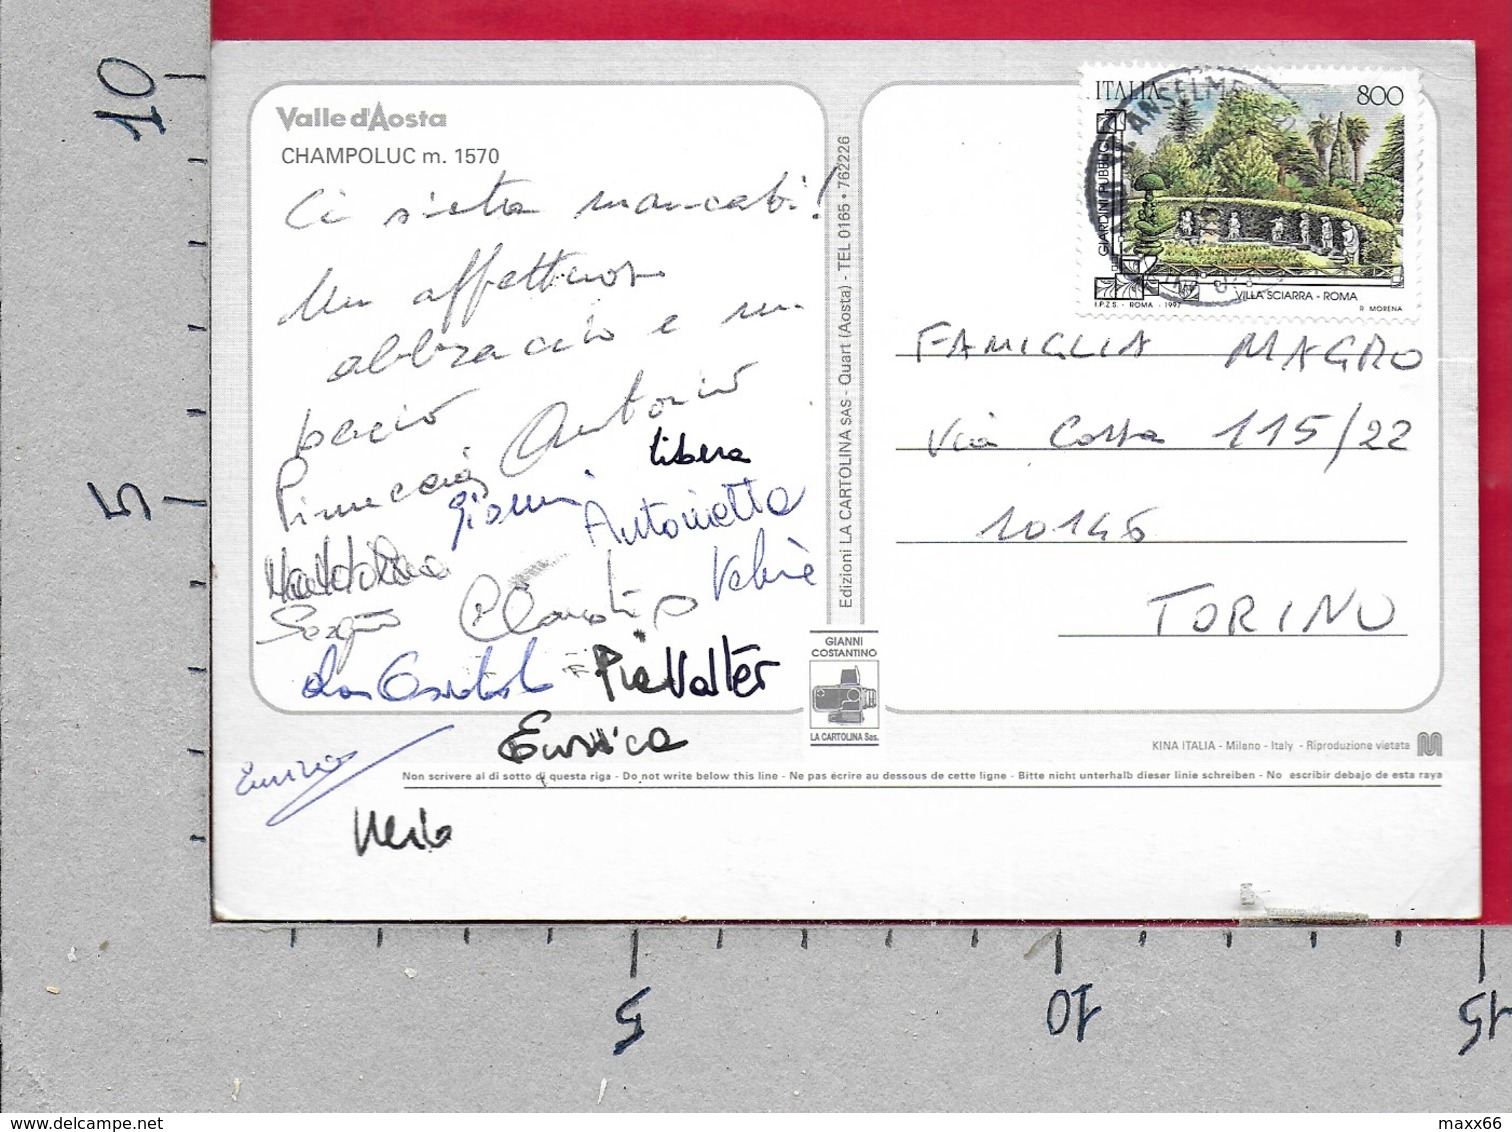 10
5
Valle d'Aosta
CHAMPOLUC m. 1570
Ci siete mancati!
Un affettuoso
abbraccio e un
bacio
Antonio
Pinuccia
Libera
Gianni
Antonietta
Valter
Pia
Enrica
Edizioni LA CARTOLINA SAS - Quart (Aosta) - TEL 0165 • 762226
GIANNI
COSTANTINO
LA CARTOLINA Sas.
ITALIA
800
GIARDINI PUBBLICI
VILLA SCIARRA - ROMA
I.P.Z.S. - ROMA - 1997
R. MORENA
FAMIGLIA MAGRO
Via Cossa 115/22
10146
TORINO
KINA ITALIA - Milano - Italy - Riproduzione vietata
Non scrivere al di sotto di questa riga - Do not write below this line - Ne pas écrire au dessous de cette ligne - Bitte nicht unterhalb dieser linie schreiben - No escribir debajo de esta raya
5
10
15
delcampe.net
maxx66